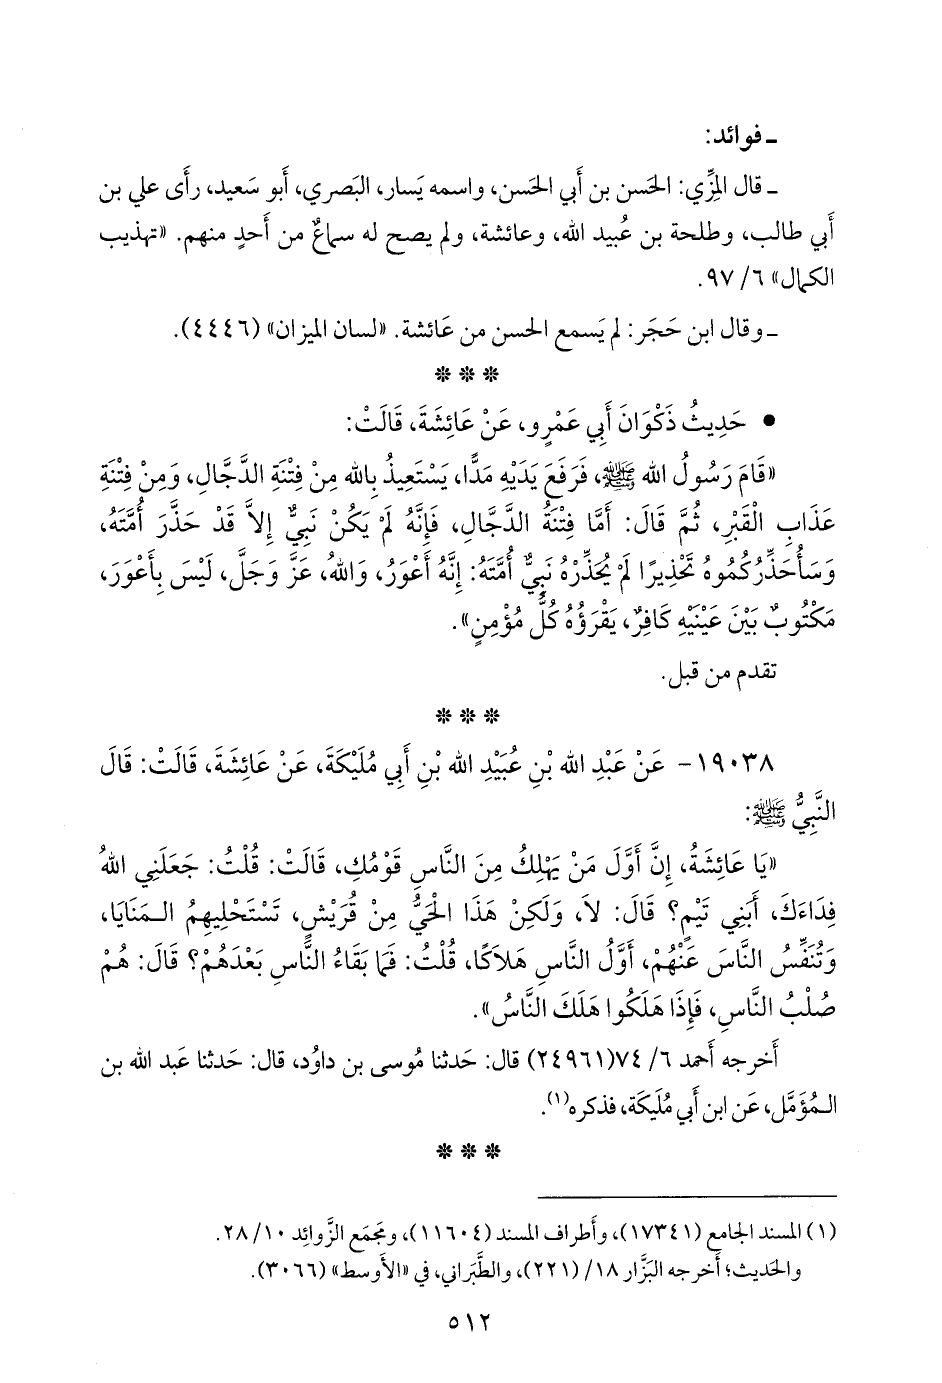 ـ فوائد:
ـ قال المِزِّي: الحَسن بن أَبي الحَسن، واسمه يَسار، البَصري، أَبو سَعيد، رأَى علي بن
أَبي طالب، وطلحة بن عُبيد الله، وعائشة، ولم يصح له سماعٌ من أَحدٍ منهم. «تهذيب
الكمال» ٦/ ٩٧.
ـ وقال ابن حَجَر: لم يَسمع الحسن من عَائشة. «لسان الميزان» (٤٤٤٦).
* * *
• حَدِيثُ ذَكْوَانَ أَبِي عَمْرٍو، عَنْ عَائِشَةَ، قَالَتْ:
«قَامَ رَسُولُ الله ﷺ، فَرَفَعَ يَدَيْهِ مَدًّا، يَسْتَعِيذُ بِالله مِنْ فِتْنَةِ الدَّجَّالِ، وَمِنْ فِتْنَةِ
عَذَابِ الْقَبْرِ، ثُمَّ قَالَ: أَمَّا فِتْنَةُ الدَّجَّالِ، فَإِنَّهُ لَمْ يَكُنْ نَبِيٌّ إِلاَّ قَدْ حَذَّرَ أُمَّتَهُ،
وَسَأُحَذِّرُكُمُوهُ تَحْذِيرًا لَمْ يُحَذِّرْهُ نَبِيٌّ أُمَّتَهُ: إِنَّهُ أَعْوَرُ، وَاللهُ، عَزَّ وَجَلَّ، لَيْسَ بِأَعْوَرَ،
مَكْتُوبٌ بَيْنَ عَيْنَيْهِ كَافِرٌ، يَقْرَؤُهُ كُلُّ مُؤْمِنٍ».
تقدم من قبل.
* * *
١٩٠٣٨- عَنْ عَبْدِ الله بْنِ عُبَيْدِ الله بْنِ أَبِي مُلَيْكَةَ، عَنْ عَائِشَةَ، قَالَتْ: قَالَ
النَّبِيُّ ﷺ:
«يَا عَائِشَةُ، إِنَّ أَوَّلَ مَنْ يَهْلِكُ مِنَ النَّاسِ قَوْمُكِ، قَالَتْ: قُلْتُ: جَعَلَنِي اللهُ
فِدَاءَكَ، أَبَنِي تَيْمٍ؟ قَالَ: لاَ، وَلَكِنْ هَذَا الْحَيُّ مِنْ قُرَيْشٍ، تَسْتَحْلِيهِمُ الـمَنَايَا،
وَتُنَفِّسُ النَّاسَ عَنْهُمْ، أَوَّلُ النَّاسِ هَلاَكًا، قُلْتُ: فَمَا بَقَاءُ النَّاسِ بَعْدَهُمْ؟ قَالَ: هُمْ
صُلْبُ النَّاسِ، فَإِذَا هَلَكُوا هَلَكَ النَّاسُ».
أَخرجه أَحمد ٦/ ٧٤(٢٤٩٦١) قال: حَدثنا مُوسى بن داوُد، قال: حَدثنا عَبد الله بن
الـمُؤَمَّل، عَن ابن أَبي مُلَيكَة، فذكره(١).
* * *
(١) المسند الجامع (١٧٣٤١)، وأَطراف المسند (١١٦٠٤)، ومَجمَع الزَّوائِد ١٠/ ٢٨.
والحَديث؛ أَخرجه البَزَّار ١٨/ (٢٢١)، والطَّبَراني، في «الأَوسط» (٣٠٦٦).
٥١٢